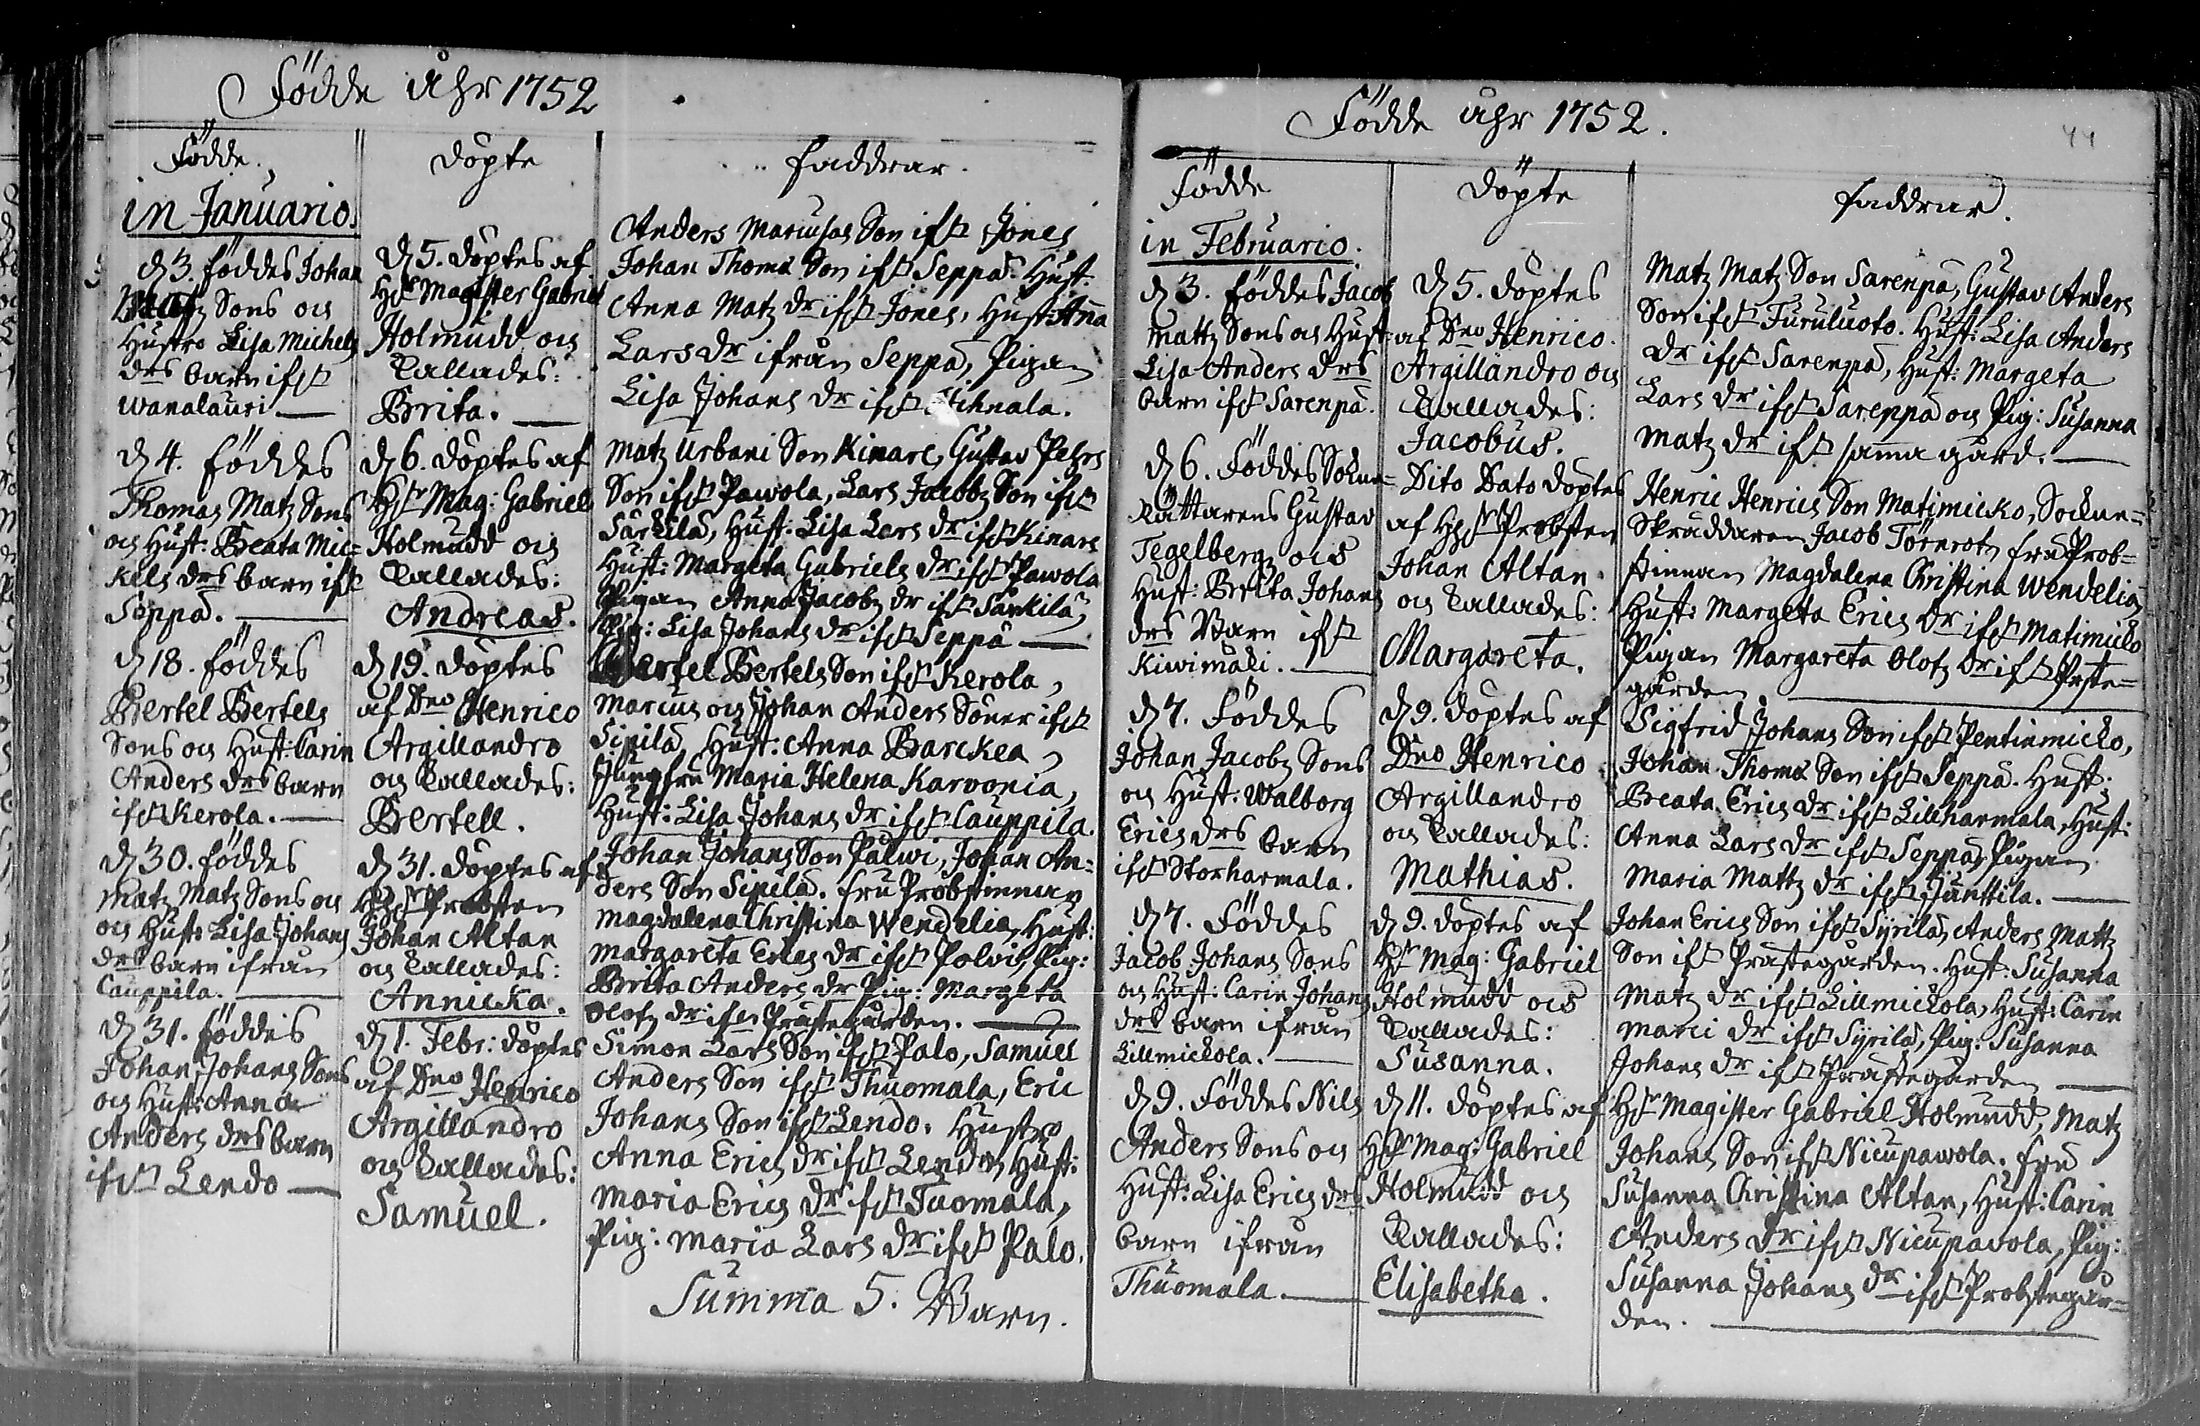 Födde åhr 1752
Födde.
in Januario.
d 3. föddes Johan
Matz Sons och
Hustro Lisa Michels
drs barn ifrån
Wanalauri.
d 4. föddes
Thomas Matz Sons
och Hust: Beata Mic=
kels drs barn ifrån
Seppä.
d 18. föddes
Bertel Bertels
Sons och Hust: Carin
Anders drs barn
ifrån Kerola.
d 30. föddes
Matz Matz Sons och
och Hust: Lisa Johans
drs barn ifrån
Cauppila.
d 31. föddes
Johan Johans Sons
och Hust: Anna
Anders drs barn
ifrån Lendo
döpte
d 5. döptes af
Hr Magister Gabriel
Holmudd och
kallades:
Brita.
d 6. döptes af
Hr Mag: Gabriel
Holmudd och
kallades:
Andreas.
d 19. döptes
af Dno Henrico
Argillandro
och kallades:
Bertell.
d 31. döptes af
Hr Probsten
Johan Altan
och kallades:
Annicka.
d 1. Febr: döptes
af Dno Henrico
Argillandro
och kallades:
Samuel.
faddrar.
Anders Marcusas Son ifrån Jones
Johan Thomæ Son ifrån Seppä. Hust:
Anna Matz dr ifrån Jones, Hust: Anna
Lars dr ifrån Seppä, Pigan
Lisa Johans dr ifrån
Matz Urbani Son Kinare, Gustav Pehrs
Son ifrån Pawola, Lars Jacobs Son ifrån
Särkilä, Hust: Lisa Lars dr ifrån Kinare
Hust: Margeta Gabriels dr ifrån Pawola
Pigan Anna Jacobs dr ifrån Särkilä,
Pig: Lisa Johans dr ifrån Seppä
Bertel Bertels Son ifrån Kerola,
Marcus och Johan Anders Söner ifrån
Sipilä, Hust: Anna Barckea,
Jungfru Maria Helena Karvonia,
Hust: Lisa Johans dr ifrån Cauppila.
Johan Johans Son Pälwi, Johan An=
ders Son Sipilä. fru Probstinnan
Magdalena Christina Wendelia, Hust:
Margareta Erics dr ifrån Polvi, Pig:
Brita Anders dr Pig: Margeta
Olofs dr ifrån Prästegården.
Simon Lars Son ifrån Palo, Samuel
Anders Son ifrån Thuomala, Eric
Johans Son ifrån Lendo. Hustro
Anna Erics dr ifrån Lendo, Hust:
Maria Erics dr ifrån Tuomala,
Pig: Maria Lars dr ifrån Palo.
Summa 5. Barn.
Födde åhr 1752.
44
Födde
in Februario.
d 3. föddes Jacob
Mattz Sons och Hust:
Lisa Anders drs
barn ifrån Sarenpä.
d 6. Föddes Sokne=
Rättarens Gustav
Tegelberg och
Hust: Brita Johans
drs Barn ifrån
Kiwimäki.
d 7. Föddes
Johan Jacobs Sons
och Hust: Walborg
Erics drs barn
ifrån Storharmala.
d 7. Föddes
Jacob Johans Sons
och Hust: Carin Johans
drs barn ifrån
Lillmickola.
d 9. Föddes Nils
Anders Sons och
Hust: Lisa Erics drs
barn ifrån
Thuomala.
Döpte
d 5. döptes
af Dno Henrico
Argillandro och
kallades:
Jacobus.
Dito Dato döptes
af Hr Probsten
Johan Altan
och kallades:
Margareta.
d 9. döptes af
Dno Henrico
Argillandro
och kallades:
Mathias.
d 9. döptes af
Hr Mag: Gabriel
Holmudd och
kallades:
Susanna.
d 11. döptes af
Hr Mag: Gabriel
Holmudd och
kallades:
Elisabetha.
faddrar.
Matz Matz Son Sarenpä, Gustav Anders
Son ifrån Furuluoto. Hust: Lisa Anders
dr ifrån Sarenpä, Hust: Margeta
Lars dr ifrån Sarenpä och Pig: Susanna
Matz dr ifrån samma gård.
Henric Henrics Son Matimicko, Sockne=
Skräddaren Jacob Törnrot, fru Prob=
stinnan Magdalena Christina Wendelia,
Hust: Margeta Erics dr ifrån Matimicko
Pigan Margareta Olofs dr ifrån Prste=
gården
Sigfrid Johans Son ifrån Pentinmicko,
Johan Thomæ Son ifrån Seppä. Hust:
Beata Erics dr ifrån Lillharmala, Hust:
Anna Lars dr ifrån Seppä, Pigan
Maria Mattz dr ifrån Junttila.
Johan Erics Son ifrån Syrilä, Anders Mattz
Son ifrån Prästegården. Hust: Susanna
Matz dr ifrån Lillmickola, Hust: Carin
Marci dr ifrån Syrilä, Pig: Susanna
Johans dr ifrån Prästegården
Hr Magister Gabriel Holmudd, Matz
Johans Son ifrån Nicupawola. fru
Susanna Christina Altan, Hust: Carin
Anders dr ifrån Nicupavola, Pig:
Susanna Johans dr ifrån Probstegår=
den.